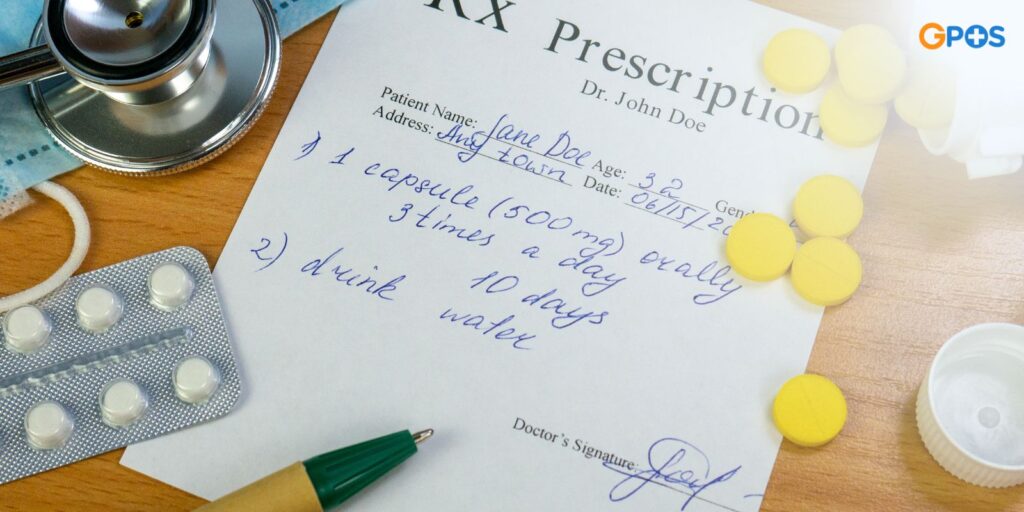 GPOS
RX Prescription
Dr. John Doe
Patient Name: Jane Doe Age: 32
Address: Any town Date: 06/15/20
1) 1 capsule (500 mg) orally
3 times a day
10 days
2) drink water
Doctor's Signature: